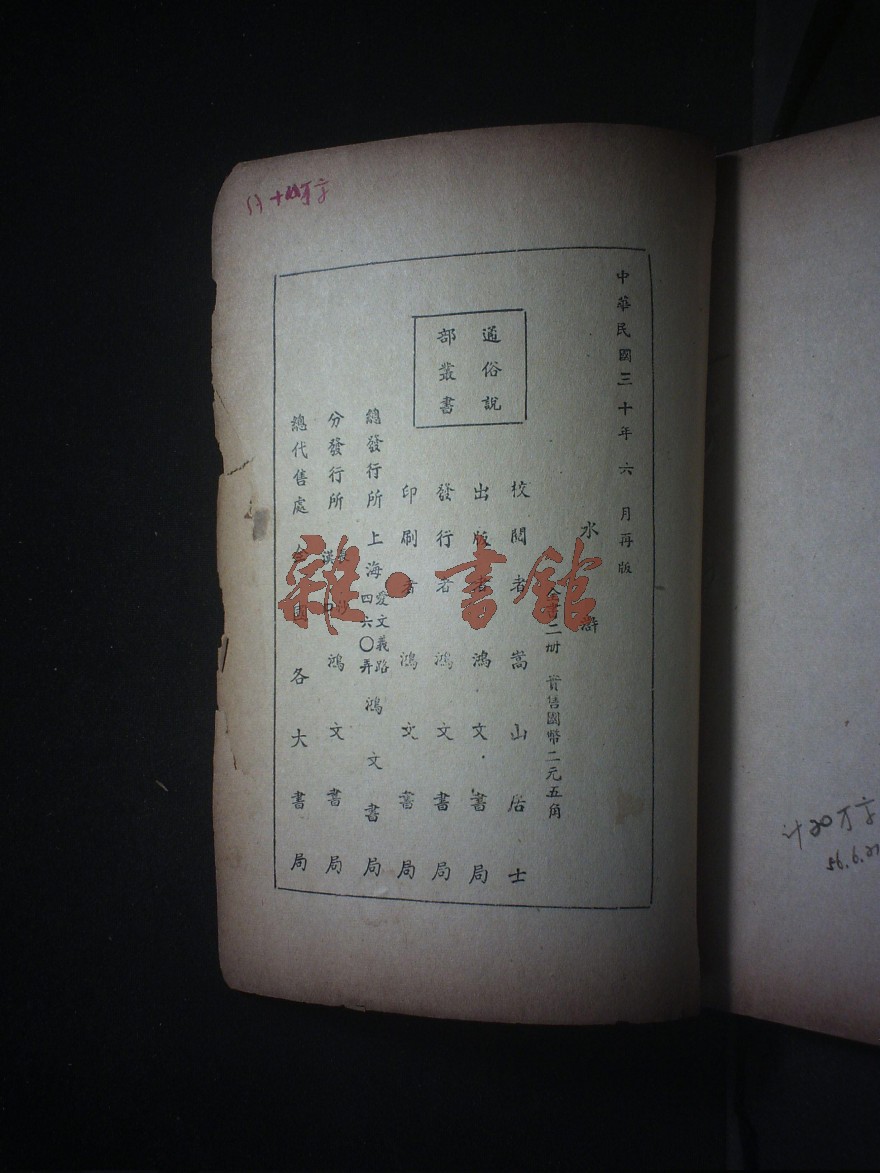 中華民國三十年六月再版
水滸
全書二冊 實售國幣二元五角
通俗說
部叢書
校閱者 嵩山居士
出版者 鴻文書局
發行者 鴻文書局
印刷者 鴻文書局
總發行所 上海愛文義路四六〇弄 鴻文書局
分發行所 漢口 鴻文書局
總代售處 全國各大書局
雜·書館
十四万字
计20万字
56.6.21